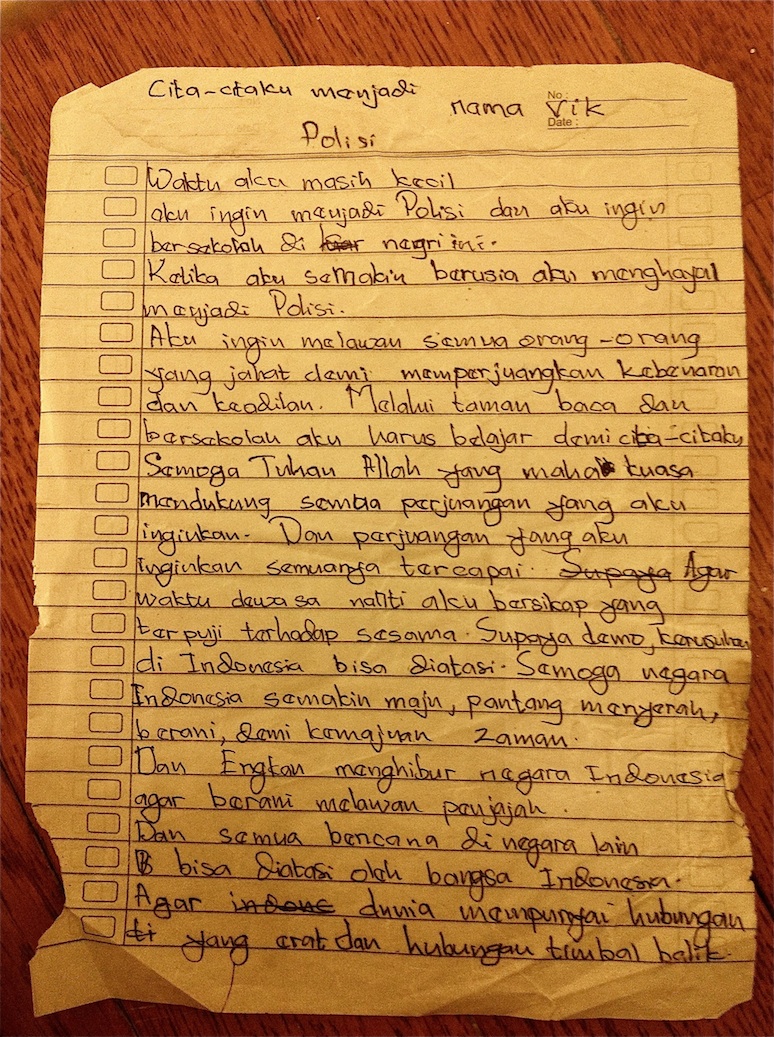 Cita-citaku menjadi
No :
nama Vik
Date :
Polisi
Waktu aku masih kecil
aku ingin menjadi Polisi dan aku ingin
bersekolah di luar negri ini.
Ketika aku semakin berusia aku menghayal
menjadi Polisi.
Aku ingin melawan semua orang-orang
yang jahat demi memperjuangkan kebenaran
dan keadilan. Melalui taman baca dan
bersekolah aku harus belajar demi cita-citaku
Semoga Tuhan Allah yang maha kuasa
mendukung semua perjuangan yang aku
inginkan. Dan perjuangan yang aku
inginkan semuanya tercapai. Supaya Agar
waktu dewasa nanti aku bersikap yang
terpuji terhadap sesama. Supaya demo, kerusuhan
di Indonesia bisa diatasi. Semoga negara
Indonesia semakin maju, pantang menyerah,
berani, demi kemajuan zaman.
Dan Engkau menghibur negara Indonesia
agar berani melawan penjajah.
Dan semua bencana di negara lain
B bisa diatasi oleh bangsa Indonesia.
Agar indone dunia mempunyai hubungan
ti yang erat dan hubungan timbal balik.